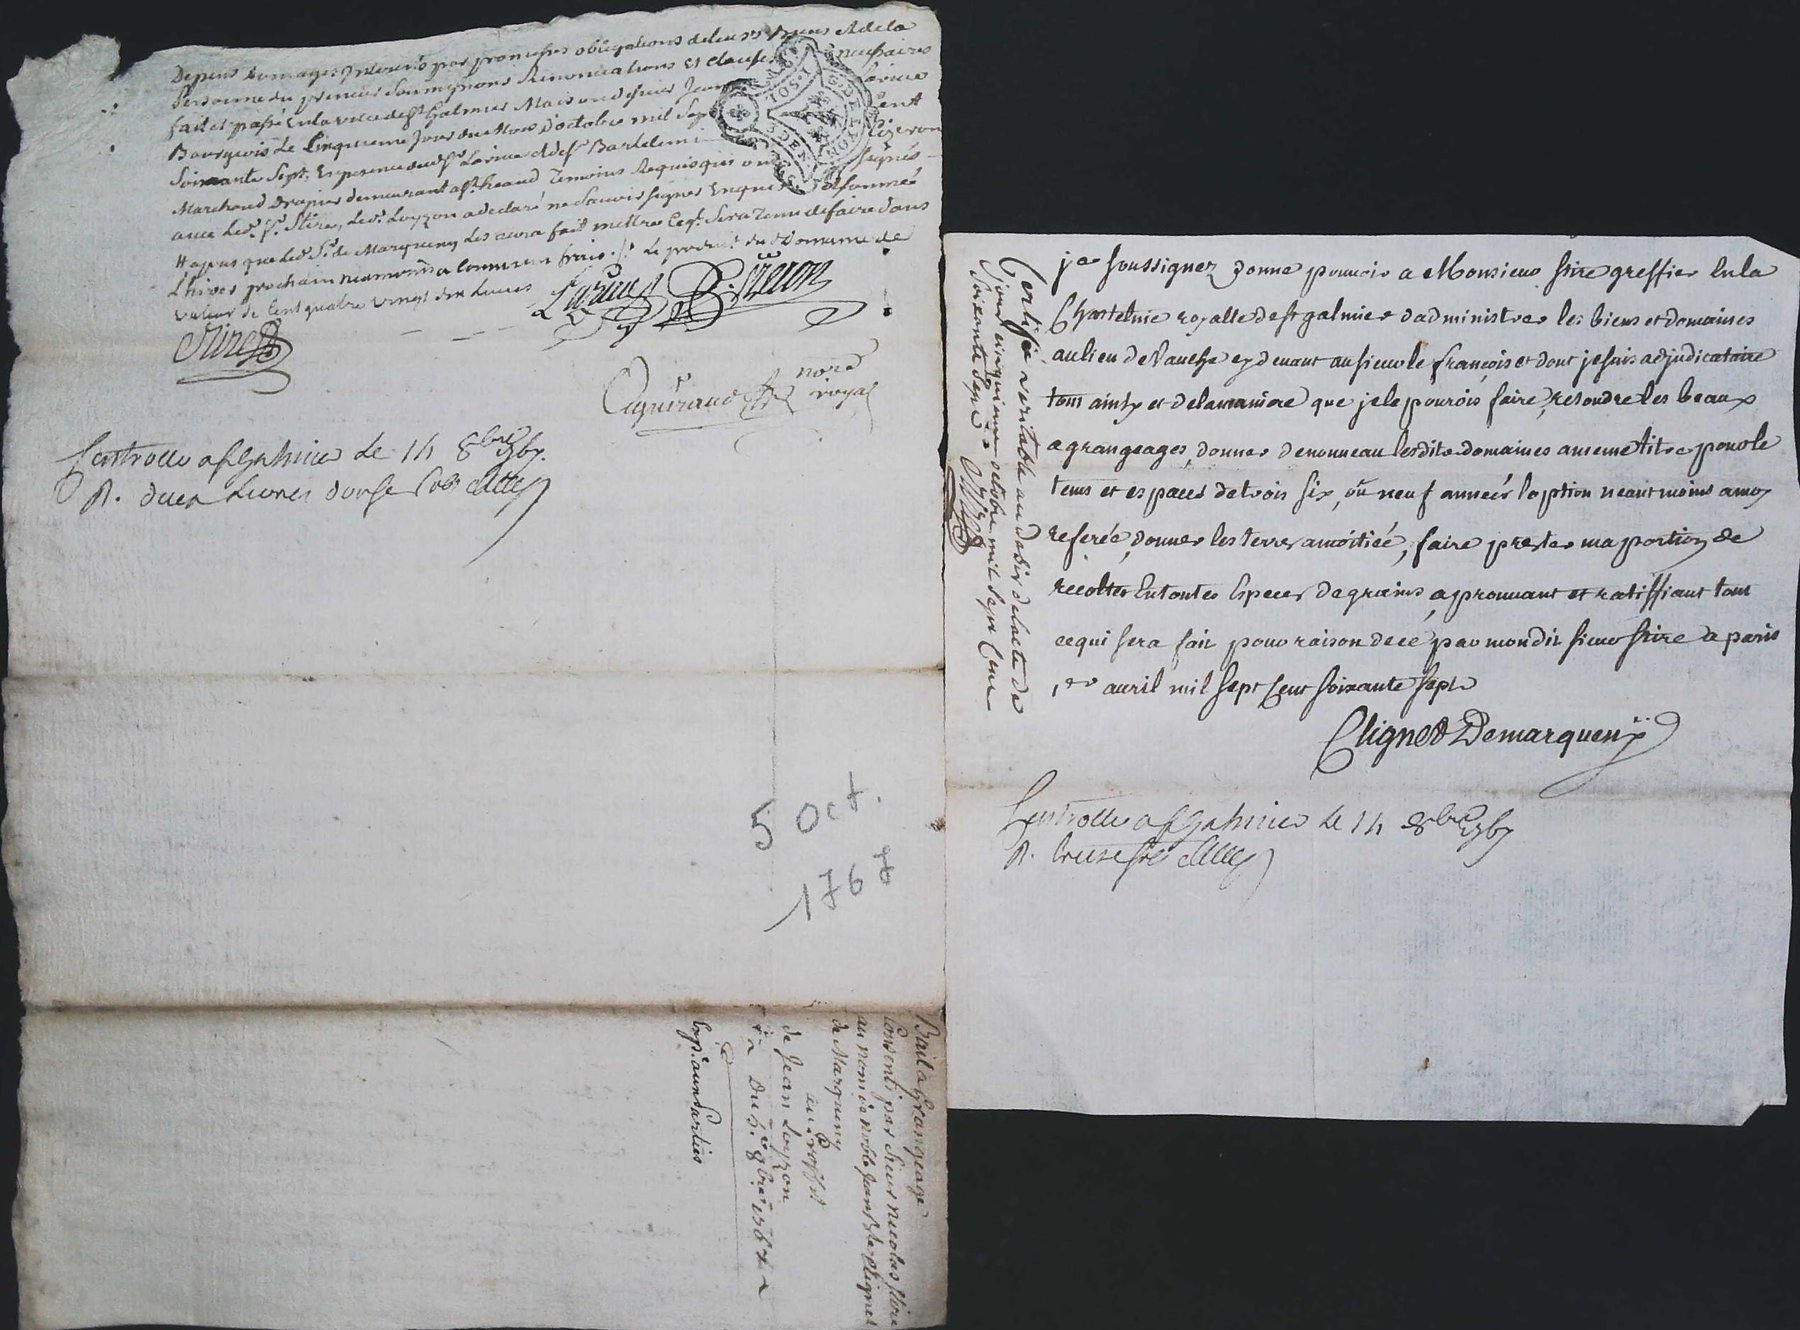 Depens domages Interests par promesses obligations de leurs Biens et de la
personne du preneur soumissions Renonciations et clauses necessaires
fait et passé en la ville de st Galmier Maison de sieur Jean Larue
Bourgeois Le Cinquieme Jour du Mois d'octobre mil sept Cent
Soixante Sept, En presence dud. sr Larue et de sr Bartelemi Sizeron
Marchand Drapier demeurant a st heand Temoins Requis qui ont signés
avec led. sr Stire, led. Loyzon a declaré ne scavoir signer Enquis et sommé
apres que led. sr de Marqueny les aura fait mettre sera tenu de faire dans
L'hiver prochain neanmoins a communs frais Le produit du Domaine de
valeur de Cent quatre vingt dix Livres
Larue B. Sizeron
Stire
nore
royal
Controlle a st Galmier le 14 8bre 1767.
R. deux Livres douse sols
5 oct.
1767
Bail a Grangeage
Consenti par Sieur nicolas Stire
au nom de noble Clignet
de Marqueny
au Proffit
de Jean Loyzon
Du 5e 8bre 1767
Exp. aux Parties
je soussignez donne pouvoir a Monsieur Stire greffier en la
Chastelnie royalle de st galmier d'administrer les biens et domaines
au lieu de Vauche cy devant au sieur le françois et dont je suis adjudicataire
tout ainsy et de la maniere que je le pourois faire, resoudre les beaux
a grangeages, donner de nouveau lesdits domaines au meme titre pour le
tems et espaces de trois six, ou neuf années l'option neantmoins a moy
referée, donner les terres a moitiée, faire prester ma portion de
recoltes en toutes especes de grains, aprouvant et ratiffiant tout
ce qui sera fait pour raison de ce par mondit sieur Stire a paris
1er avril mil sept cent soixante sept
Clignet Demarqueny
Controlle a st Galmier le 14 8bre 1767
R. treise sols
Certifié veritable au desir de l'acte de
Ce jourd'hui cinquieme octobre mil sept Cent
Soixante Sept